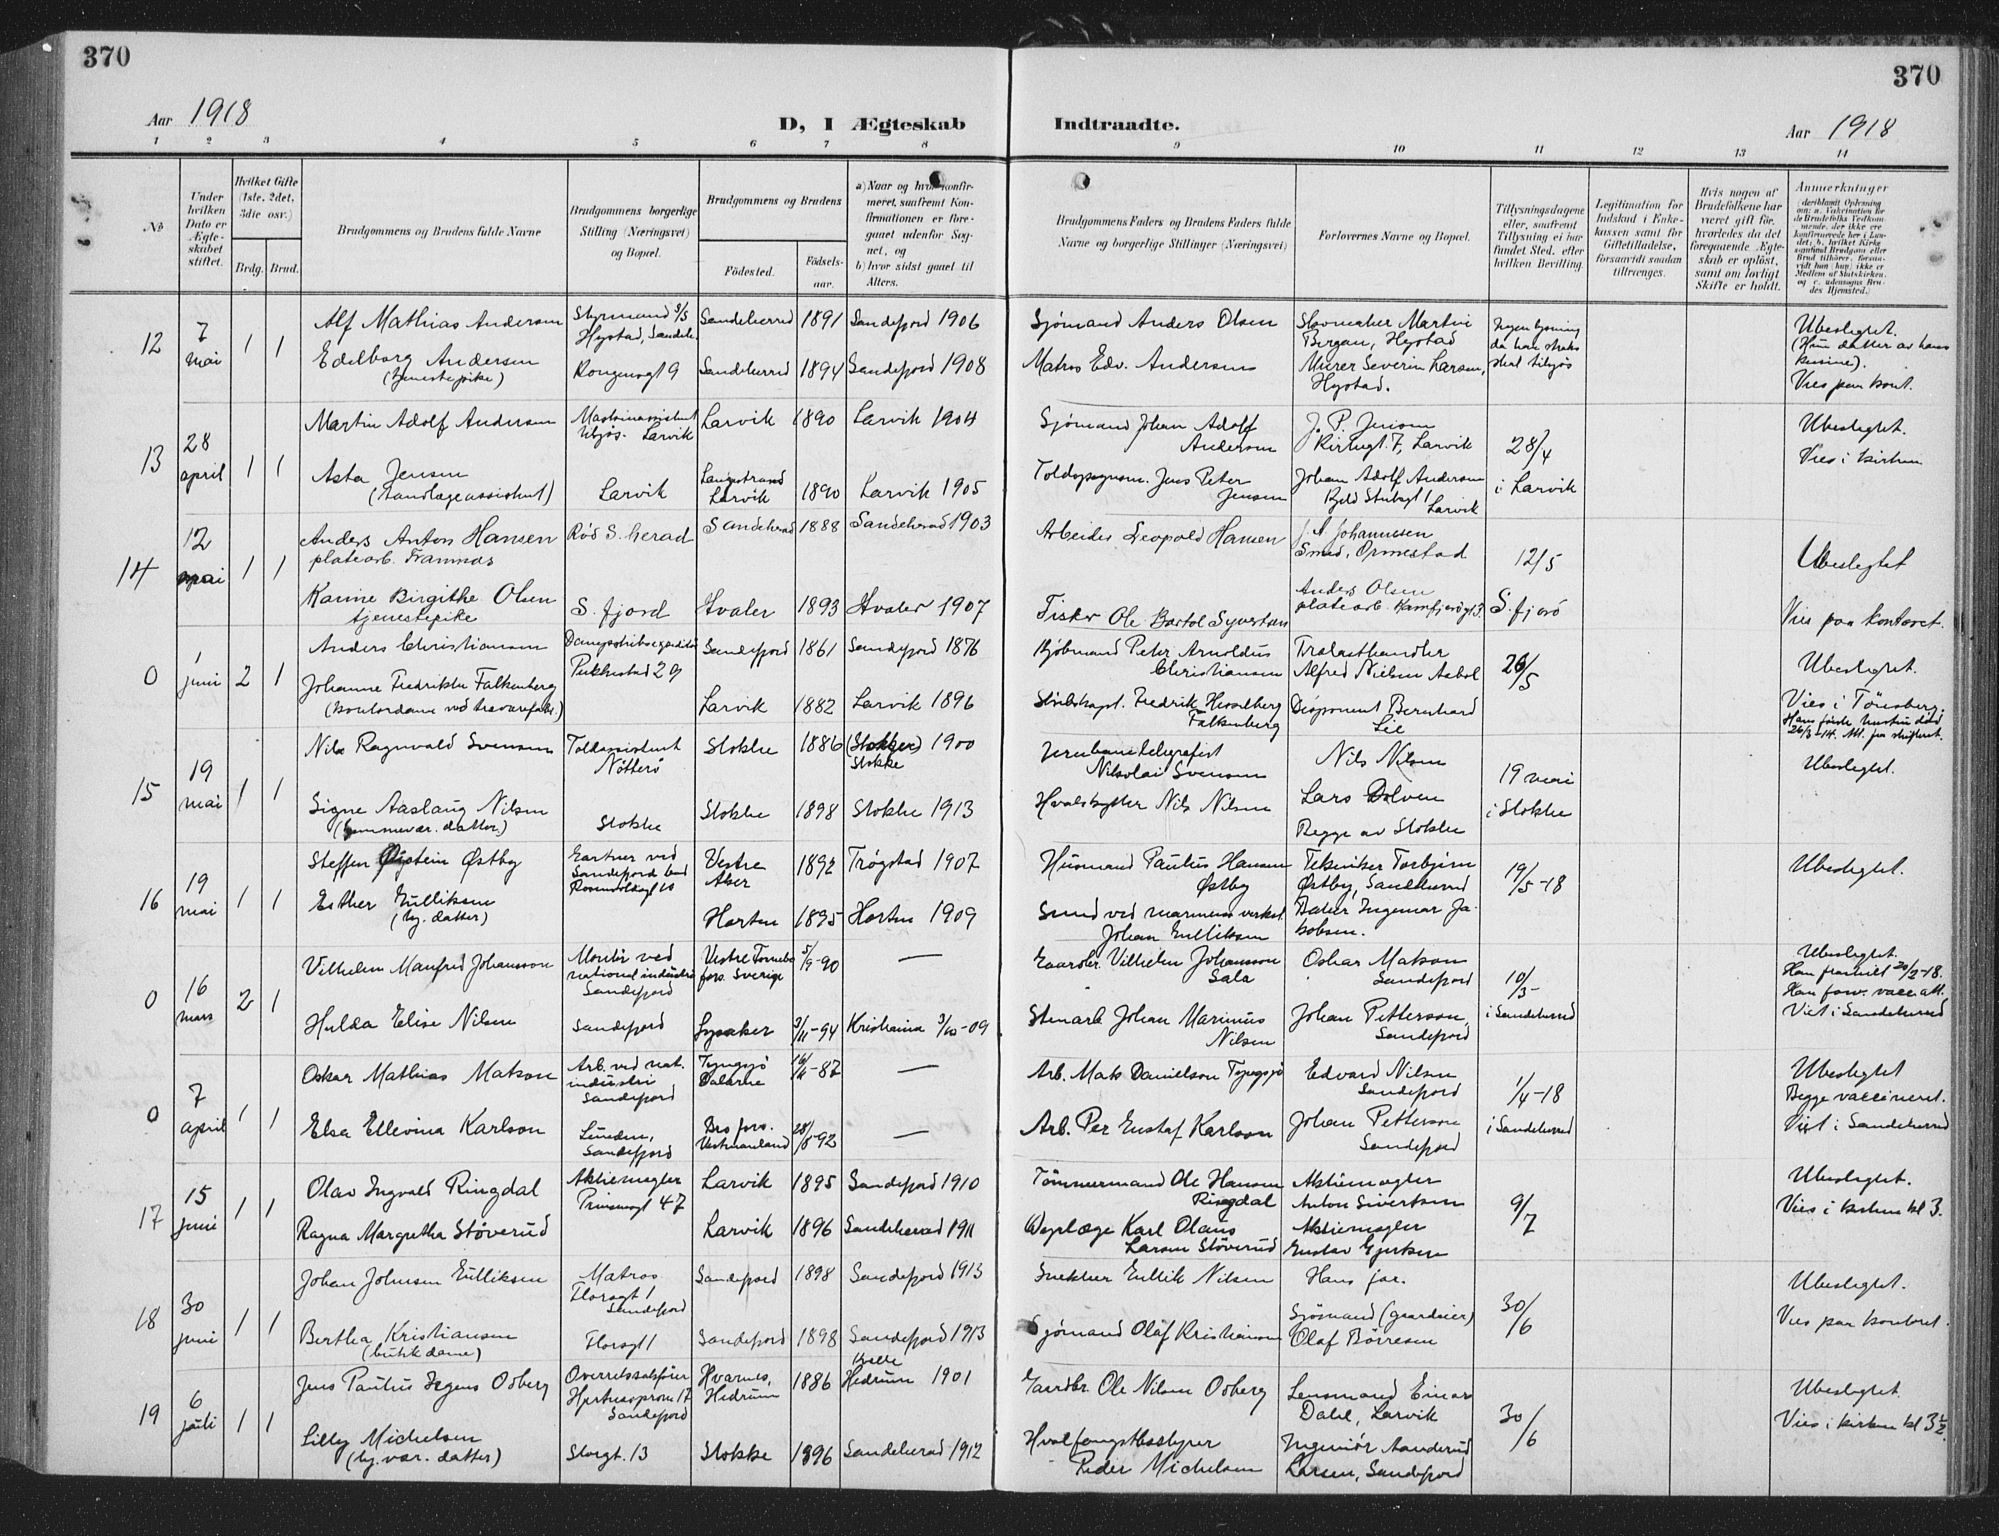 370
370
Aar 1918
D, I Ægteskab
Indtraadte.
Aar 1918
1 2 3 4 5 6 7 8 9 10 11 12 13 14
No
Under hvilken Dato er Ægteskabet stiftet.
Hvilket Gifte (1ste, 2det, 3die osv.)
Brdg. Brud.
Brudgommens og Brudens fulde Navne
Brudgommens borgerlige Stilling (Næringsvei) og Bopæl.
Brudgommens og Brudens
Födested.
Födselsaar.
a) Naar og hvor konfirmeret, saafremt Konfirmationen er foregaaet udenfor Sognet, og
b) hvor sidst gaaet til Alters.
Brudgommens Faders og Brudens Faders fulde Navne og borgerlige Stillinger (Næringsvei)
Forlovernes Navne og Bopæl.
Tillysningsdagene eller, saafremt Tillysning ei har fundet Sted, efter hvilken Bevilling.
Legitimation for Indskud i Enkekassen samt for Giftetilladelse, forsaavidt saadan tiltrænges.
Hvis nogen af Brudefolkene har været gift før, hvorledes da det foregaaende Ægteskab er oplöst, samt om lovligt Skifte er holdt.
Anmerkninger (deriblandt Oplysning om: a. Vakcination for de Brudefolks Vedkommende, der ikke ere konfirmerede her i Landet; b. hvilket Kirkesamfund Brudgom eller Brud tilhörer, forsaavidt han (hun) ikke er Medlem af Statskirken, og c. udensogns Brudes Hjemsted.)
12 7 mai 1 1
Alf Mathias Andersen Styrmand S/S Hystad, Sandeh. Sandeherred 1891 Sandefjord 1906 Sjømand Anders Olsen Skomaker Martin Bergan, Hystad Ingen lysning da han straks skal tilsjøs Ubeslegtet. (Hun datter av hans kusine).
Edelborg Andersen (tjenestepike) Kongensgt 9 Sandeherred 1894 Sandefjord 1908 Matros Edv. Andersen Murer Severin Larsen, Hystad. Vies paa kont.
13 28 april 1 1
Martin Adolf Andersen Maskinassistent tilsjøs. Larvik Larvik 1890 Larvik 1904 Sjømand Johan Adolf Andersen J. P. Jensen Kirkegt. 7, Larvik 28/4 Ubeslegtet.
Asta Jensen (tandlægeassistent) Larvik Langestrand Larvik 1890 Larvik 1905 Toldopsynsm. Jens Peter Jensen Johan Adolf Andersen Larvik i Larvik Vies i kirken
14 12 mai 1 1
Anders Anton Hansen platearb. Framnæs Rød S. herad Sandeherad 1888 Sandeherad 1903 Arbeider Leopold Hansen J. A Johannesen Smed, Ormestad 12/5 Ubeslegtet
Karine Birgithe Olsen tjenestepike S. fjord Hvaler 1893 Hvaler 1907 Fisker Ole Bartol Syvertsen Anders Olsen platearb. Kamfjordgt 3. S. fjord Vies paa kontoret.
0 1 juni 2 1
Anders Christiansen Dampskibsexpeditør Pukkestad 29 Sandefjord 1861 Sandefjord 1876 Kjøbmand Peter Arnoldus Christiansen Trælasthandler Alfred Nielsen Aabol 26/5 Ubeslegtet.
Johanne Fredrikke Falkenberg (kontordame ved trevarefabr.) Larvik 1882 Larvik 1896 Skibskapt. Fredrik Hesselberg Falkenberg Disponent Bernhard Lie Vies i Tønsberg. Hans første hustru død 26/3-14. Att. fra skifteret.
15 19 mai 1 1
Nils Ragnvald Svensen Toldassistent Nøtterø Stokke 1886 (Stokke) 1900 Stokke Jernbanetelegrafist Nikolai Svensen Nils Nilsen 19 mai Ubeslegtet.
Signe Aaslaug Nilsen (hjemmevær. datter) Stokke Stokke 1898 Stokke 1913 Hvalskytter Nils Nilsen Lars Dolven Begge av Stokke i Stokke
16 19 mai 1 1
Steffen Øistein Østby Gartner ved Sandefjords bad Vestre Aker 1892 Trøgstad 1907 Husmand Paulus Hansen Østby Tekniker Torbjørn Østby, Sandeherred 19/5-18 Ubeslegtet.
Esther Gulliksen (hj. datter) Horten 1895 Horten 1909 Smed ved marinens verkst. Johan Gulliksen Baker Ingemar Jakobsen.
0 16 mars 2 1
Vilhelm Manfred Johansson Montør ved national industri Sandefjord Vestre Torneby fors. Sverige 5/9-90 — Gaardbr. Vilhelm Johansson Sala Oskar Matson Sandefjord 10/3- Ubeslegtet. Han fraskilt 20/2-18. Han forev. vacc.att.
Hulda Elise Nilsen Sandefjord Lysaker 3/11-94 Kristiania 3/10-09 Stenarb Johan Marinius Nilsen Johan Petterson, Sandefjord i Sandeherred Viet i Sandeherred
0 7 april 1 1
Oskar Mathias Matson Arb. ved nat. industri Sandefjord Tyngsjö Dalarne 16/11-87 — Arb. Mats Danielson Tyngsjö Edvard Nilsen Sandefjord 1/4-18 Ubeslegtet Begge vaccineret.
Elsa Ellevina Karlson Linden, Sandefjord Bro fors. Vestmanland 28/8-92 — Arb. Per Gustaf Karlson Johan Petterson Sandefjord i Sandeherred Viet i Sandeherred
17 15 juni 1 1
Olav Ingvald Ringdal Aktiemegler Prinsensgt 47 Larvik 1895 Sandefjord 1910 Tømmermand Ole Hansen Ringdal Aktiemegler Anton Sivertsen 9/7 Ubeslegtet.
Ragna Margretha Støverud Larvik 1896 Sandeherred 1911 Karl Olaus Larsen Støverud Aktiemegler Gustav Gjertsen Vies i kirken kl 3.
18 30 juni 1 1
Johan Johnsen Gulliksen Matros Floragt 1 Sandefjord Sandefjord 1898 Sandefjord 1913 Snekker Gullik Nilsen Hans far. 30/6 Ubeslegtet.
Bertha Kristiansen (butikdame) Floragt 1 Sandefjord 1898 Sandefjord 1913 Sjømand Olaf Kristiansen Sjømand (gaardeier) Olaf Børresen Vies paa kontoret.
19 6 juli 1 1
Jens Paulus Jegens Osberg Overretssakfører Hjertnespromen. 17 Sandefjord Hvarnes, Hedrum 1886 Hedrum 1901 Gaardbr. Ole Nilsen Osberg Lensmand Einar Dahl, Larvik 30/6 Ubeslegtet.
Lilly Michelsen (hj. vær. datter) Storgt. 13 Stokke 1896 Sandeherad 1912 Hvalfangstbestyrer Peder Michelsen Ingeniør Aanderud Larsen, Sandefjord Vies i kirken kl 3½.